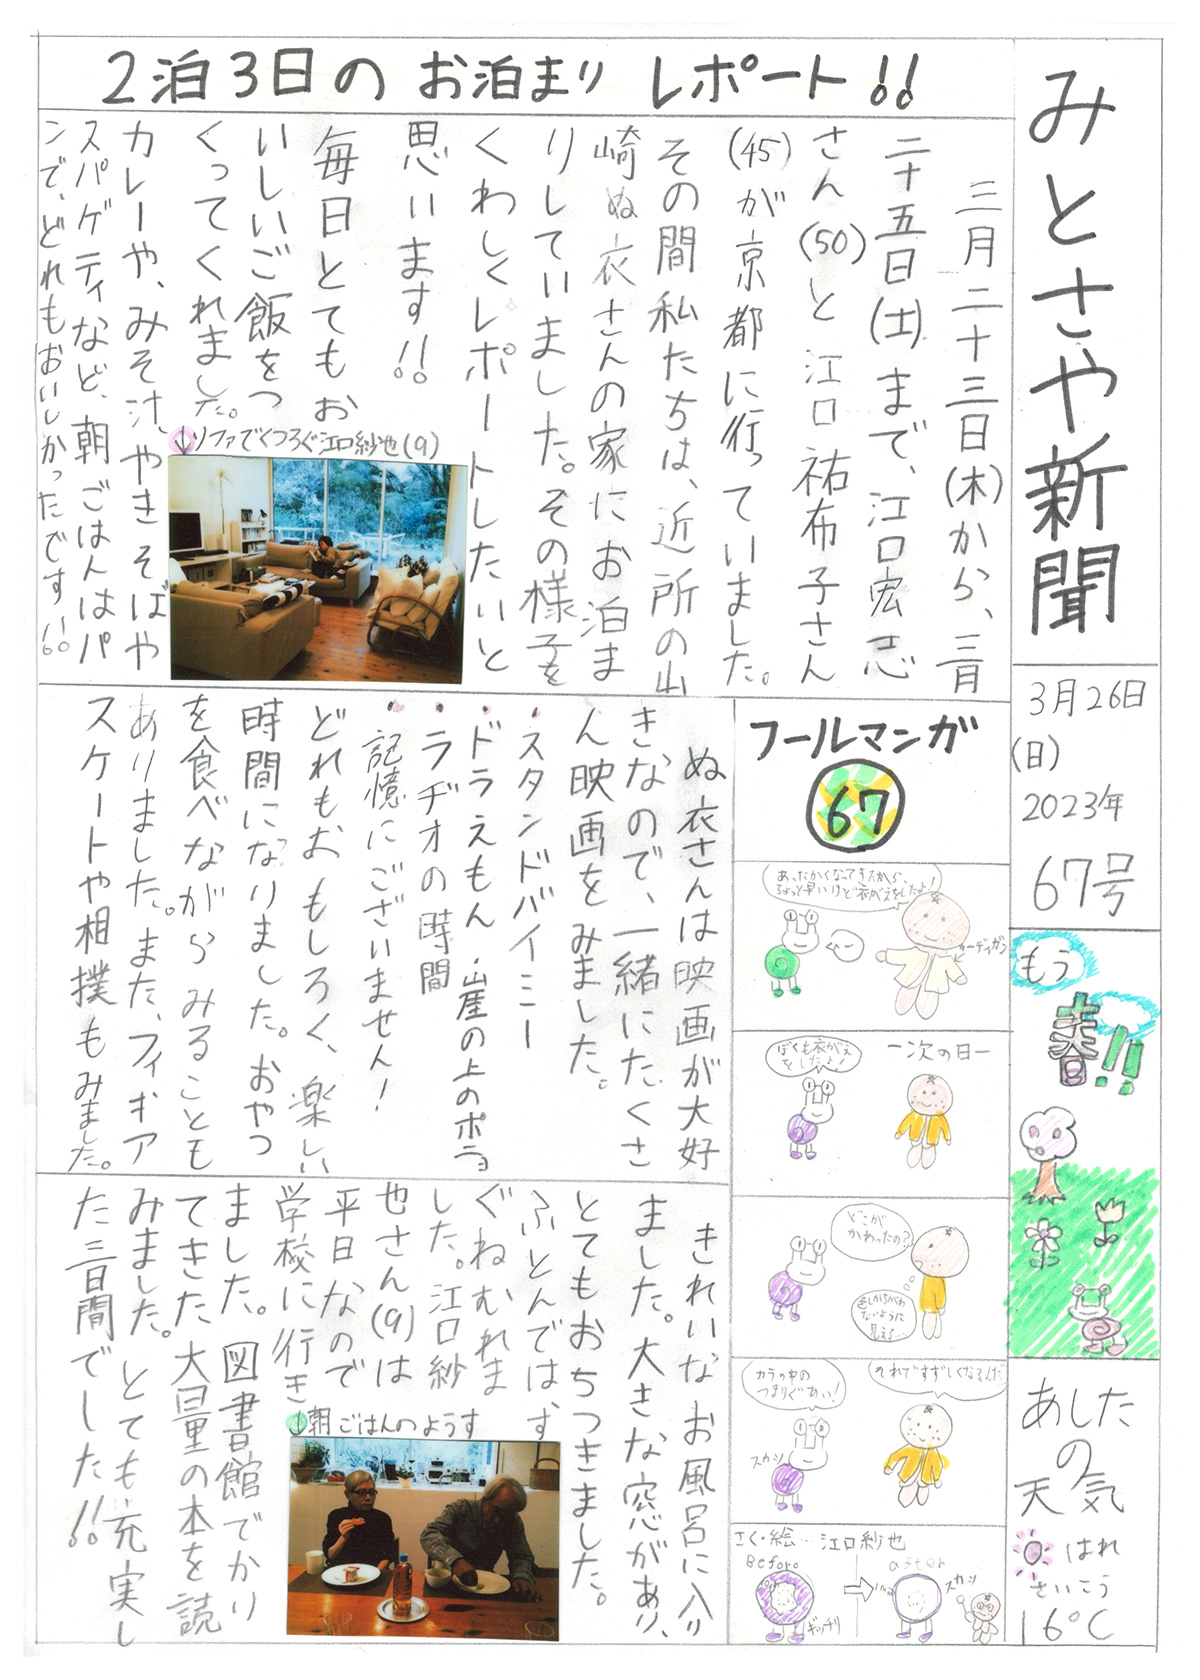 みとさや新聞
3月26日
(日)
2023年
67号
もう
春!!
あしたの
天気
はれ
さいこう
16℃
2泊3日の お泊まり レポート!!
三月二十三日(木)から、三月
二十五日(土)まで、江口宏志
さん(50)と江口祐布子さん
(45)が京都に行っていました。
その間私たちは、近所の山
崎ぬ衣さんの家にお泊ま
りしていました。その様子を
くわしくレポートしたいと
思います!!
毎日とてもお
いしいご飯をつ
くってくれました。
カレーや、みそ汁、やきそばや
スパゲティなど、朝ごはんはパ
ンで、どれもおいしかったです!!
↓ソファでくつろぐ江口紗也(9)
ぬ衣さんは映画が大好
きなので、一緒にたくさ
ん映画をみました。
・スタンドバイミー
・ドラえもん ・崖の上のポニョ
・ラヂオの時間
・記憶にございません!
どれもおもしろく、楽しい
時間になりました。おやつ
を食べながらみることも
ありました。また、フィギア
スケートや相撲もみました。
きれいなお風呂に入り
ました。大きな窓があり、
とてもおちつきました。
ふとんではす
ぐねむれま
した。江口紗
也さん(9)は
平日なので
学校に行き
ました。図書館でかり
てきた大量の本を読
みました。とても充実し
た三日間でした!!
↓朝ごはんのようす
フールマンガ
67
あったかくなってきたから、
ちょっと早いけど衣がえをしたよ!
カーディガン
一次の日一
ぼくも衣がえ
をしたよ!
どこが
かわったの?
色しかちがわ
ないように
見える…
それですずしくなるんだ
カラの中の
つまりぐあい!
スカシ
さく・絵…江口紗也
Before
ギッチリ
after
スカシ